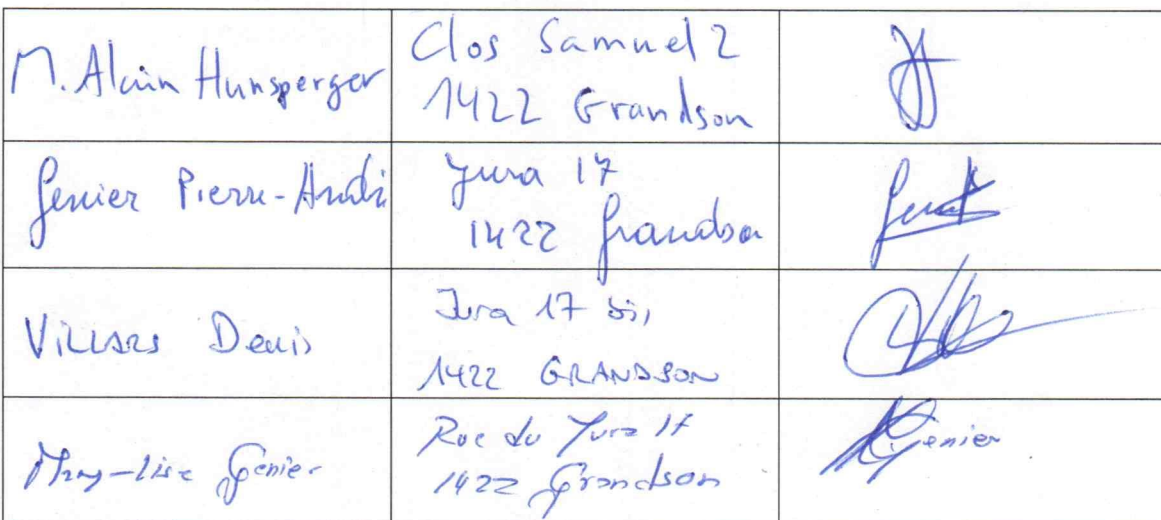 M. Alain Hunsperger
Clos Samuel 2
1422 Grandson
Genier Pierre-André
Jura 17
1422 Grandson
Villars Denis
Jura 17 bis
1422 GRANDSON
May-Lise Genier
Rue du Jura 17
1422 Grandson
Genier